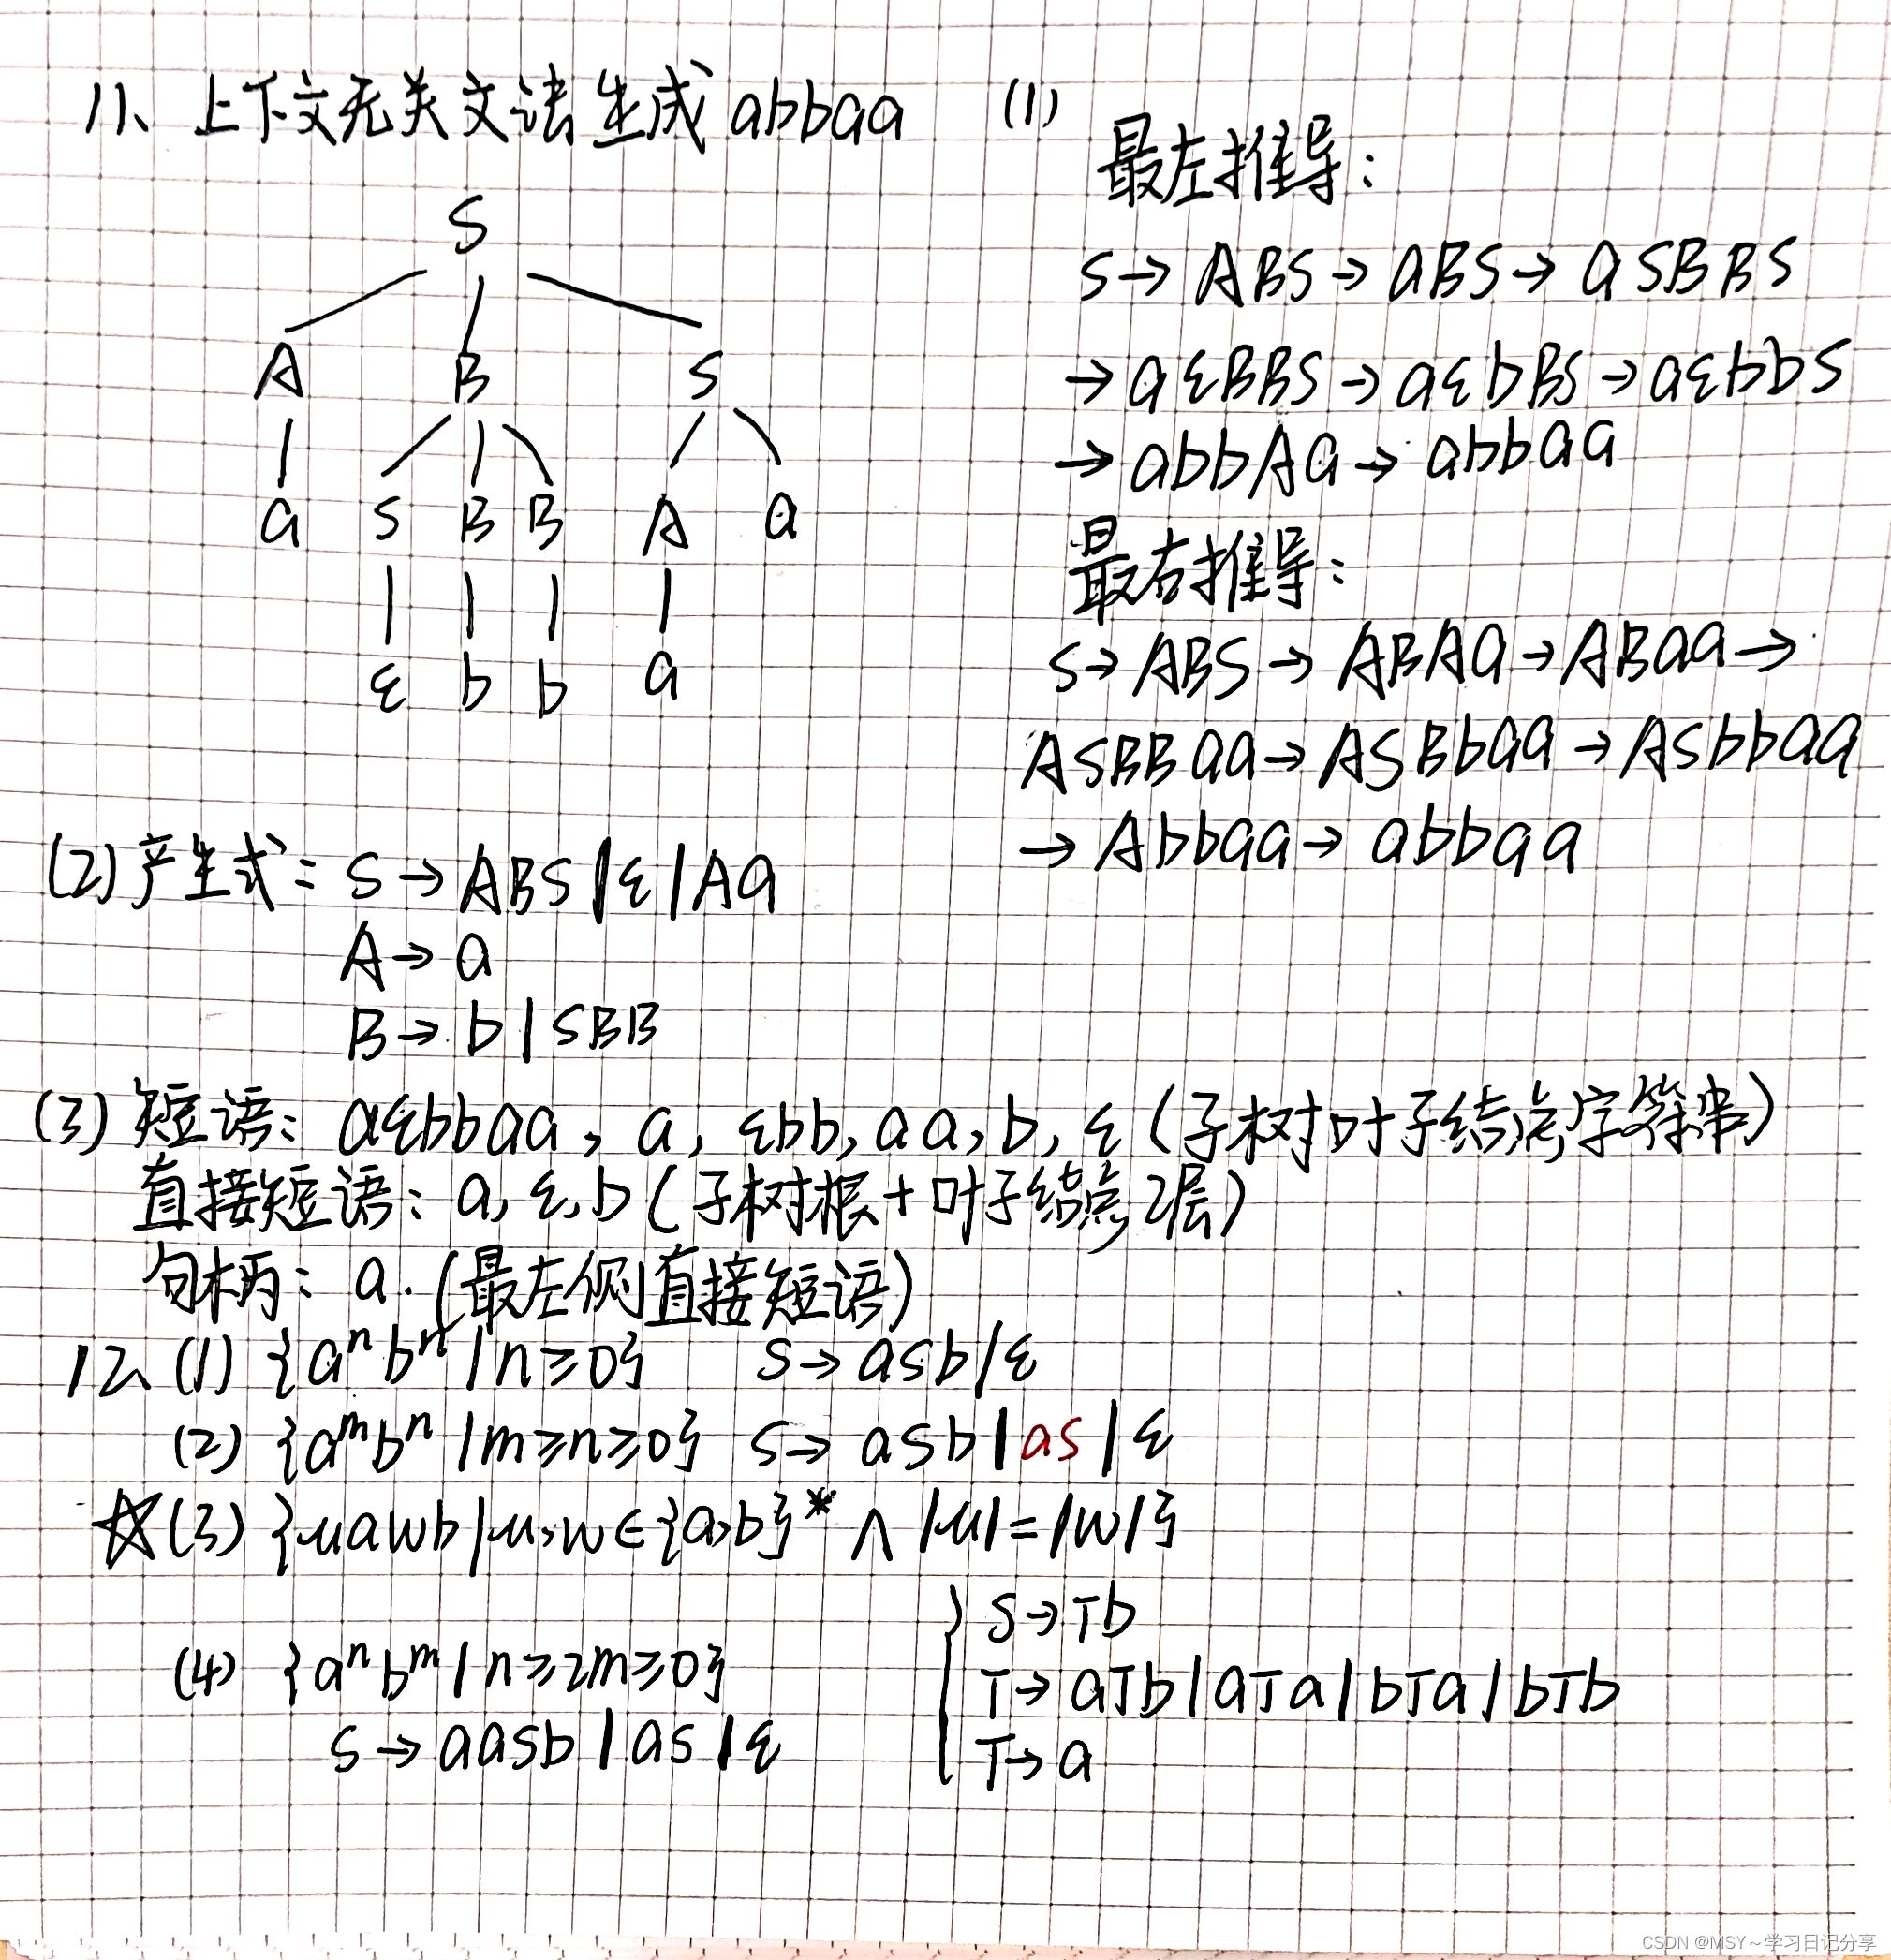 11、上下文无关文法生成abbaa (1)
最左推导:
S→ABS→aBS→aSBBS
→aεBBS→aεbBS→aεbbS
→abbAa→abbaa
最右推导:
S→ABS→ABAa→ABaa→
ASBBaa→ASBbaa→ASbbaa
→Abbaa→abbaa
S
A B S
a S B B A a
ε b b a
(2)产生式: S→ABS|ε|Aa
A→a
B→b|SBB
(3)短语: aεbbaa, a, εbb, aa, b, ε (子树叶子结点字符串)
直接短语: a, ε, b (子树根+叶子结点2层)
句柄: a. (最左侧直接短语)
12、(1) {aⁿbⁿ|n≥0} S→aSb|ε
(2) {aᵐbⁿ|m≥n≥0} S→aSb|aS|ε
☆(3) {uawb|u,w∈{a,b}* ∧ |u|=|w|}
S→Tb
T→aTb|aTa|bTa|bTb
T→a
(4) {aⁿbᵐ|n≥2m≥0}
S→aaSb|aS|ε
CSDN @MSY~学习日记分享